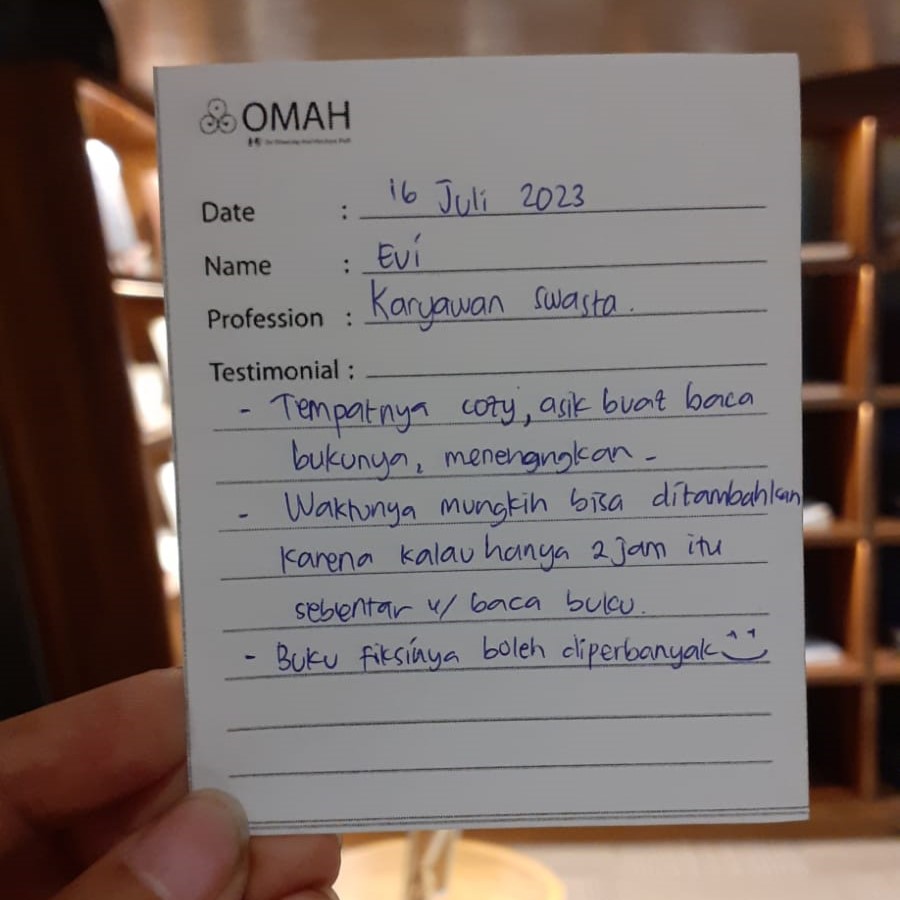 OMAH
Date : 16 Juli 2023
Name : Evi
Profession : Karyawan swasta.
Testimonial :
- Tempatnya cozy, asik buat baca
bukunya, menenangkan -
- Waktunya mungkin bisa ditambahkan
karena kalau hanya 2 jam itu
sebentar u/ baca buku.
- Buku fiksinya boleh diperbanyak